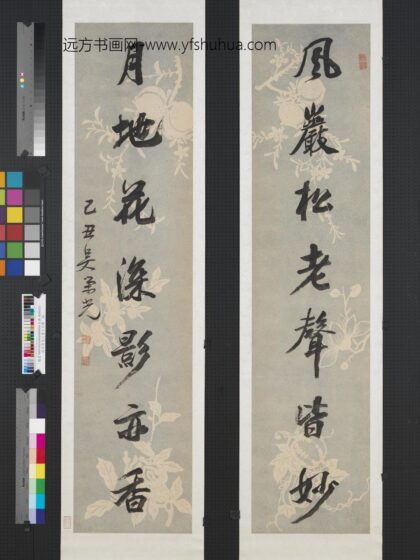 远方书画网 www.yfshuhua.com
風巖松老聲皆妙
月地花深影亦香
己丑吳榮光